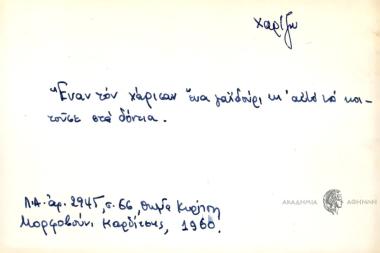 χαρίζω
Ἕναν τὸν χάρισαν ἕνα γαϊδούρι κι' αὐτὸ τὸ κοι-
τοῦσε στὰ δόντια.
Λ.Α. ἀρ. 2945, σ. 66,
Μορφοβούνι Καρδίτσης, 1960.
ΑΚΑΔΗΜΙΑ ΑΘΗΝΩΝ